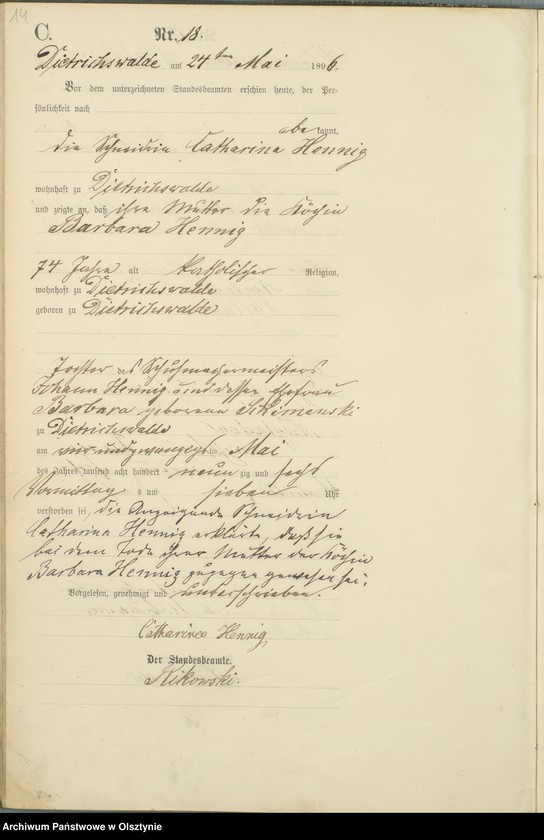 14
C.
Nr. 18.
Dietrichswalde am 24ten Mai 1896.
Vor dem unterzeichneten Standesbeamten erschien heute, der Per-
sönlichkeit nach
be kannt,
die Schneiderin Catharina Hennig
wohnhaft zu Dietrichswalde
und zeigte an, daß ihre Mutter die Köchin
Barbara Hennig
74 Jahre alt katholischer Religion,
wohnhaft zu Dietrichswalde
geboren zu Dietrichswalde
Tochter des Schuhmachermeisters
Johann Hennig und dessen Ehefrau
Barbara geborene Sikimanski
zu Dietrichswalde
am vierundzwanzigsten Mai
des Jahres tausend acht hundert neunzig und sechs
Vormittags um sieben Uhr
verstorben sei, die Anzeigende Schneiderin
Catharina Hennig erklärte, daß sie
bei dem Tode ihrer Mutter der Köchin
Barbara Hennig zugegen gewesen sei.
Vorgelesen, genehmigt und unterschrieben.
Catharina Hennig
Der Standesbeamte.
Rikowski.
Archiwum Państwowe w Olsztynie